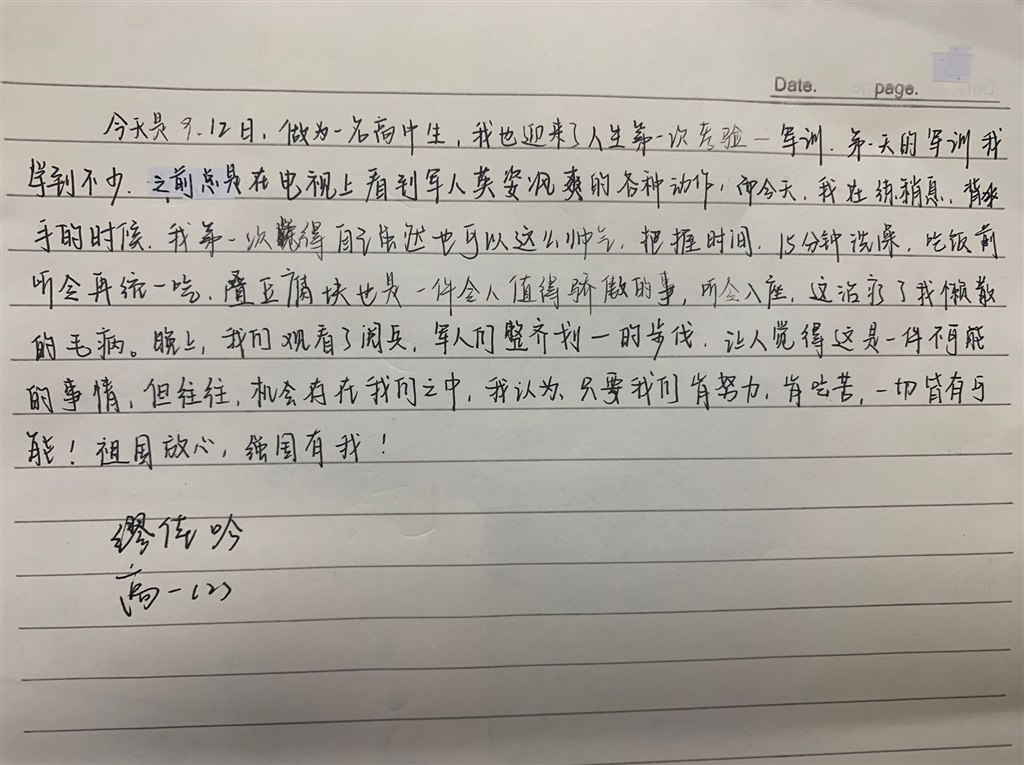 Date. page.
今天是9.12日，做为一名高中生，我也迎来了人生第一次考验—军训．第一天的军训我
学到不少．之前总是在电视上看到军人英姿飒爽的各种动作，而今天，我在练稍息，背
手的时候．我第一次觉得自己居然也可以这么帅气．把握时间．15分钟洗澡．吃饭前
听令再统一吃．叠豆腐块也是一件令人值得骄傲的事，听令入座．这治疗了我懒散
的毛病。晚上，我们观看了阅兵，军人们整齐划一的步伐．让人觉得这是一件不可能
的事情，但往往，机会存在我们之中，我认为．只要我们肯努力，肯吃苦，一切皆有可
能！祖国放心，强国有我！
缪佳吟
高一(2)